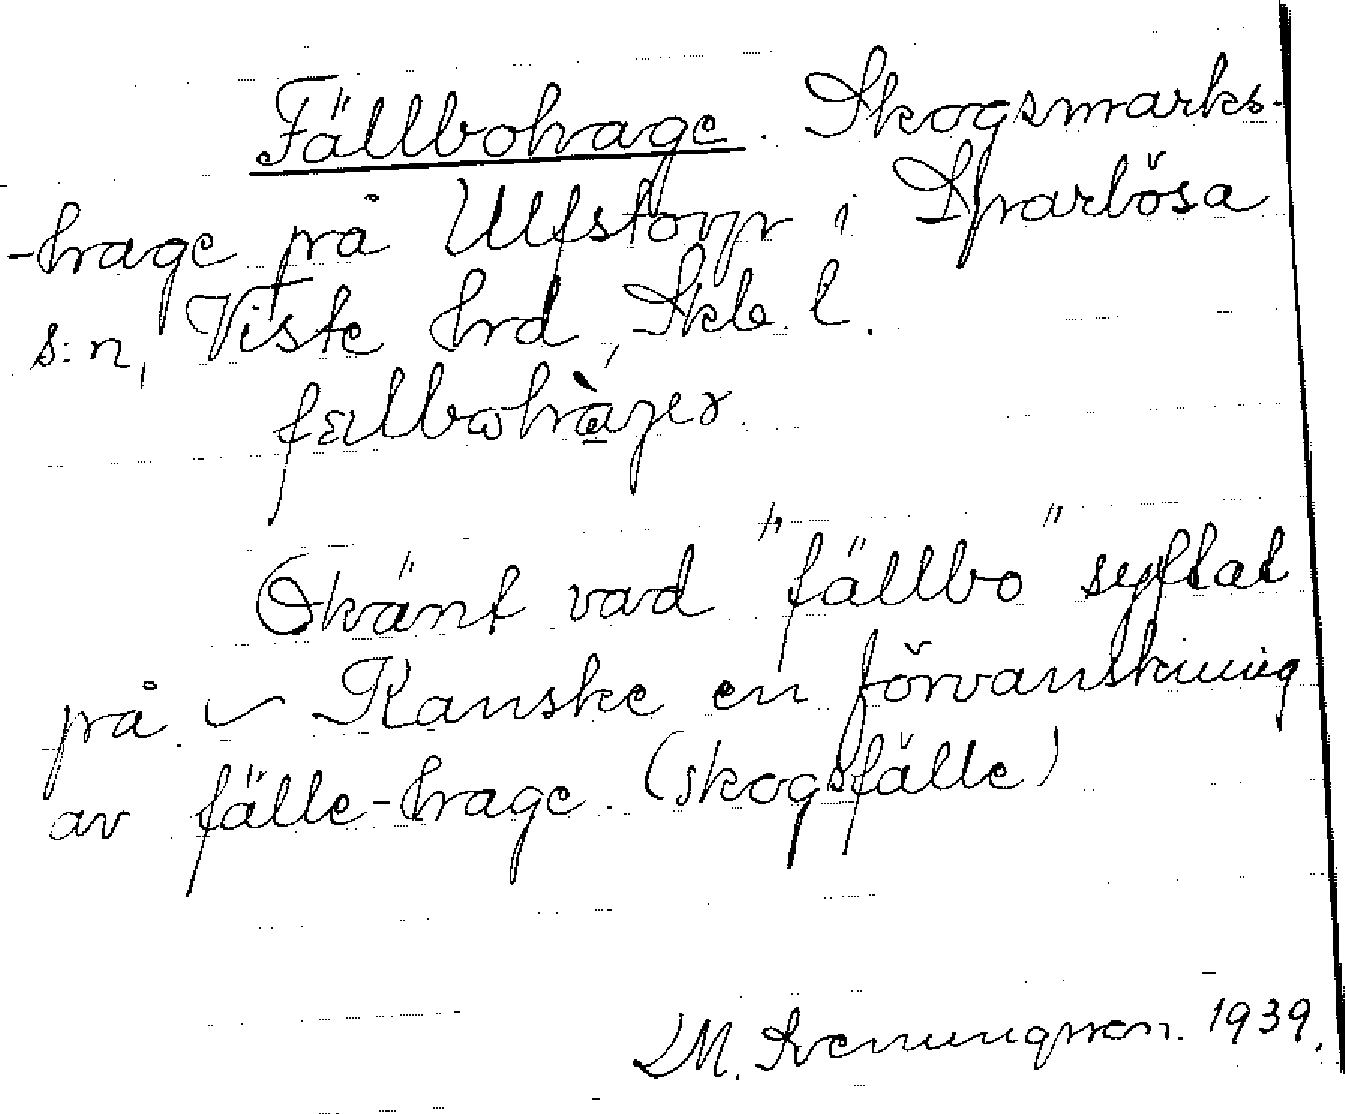 Fällbohage. Skogsmarks-
-hage på Ulfstorp i Sparlösa
s:n, Viste hrd, Skb. l.
fällbohàger.
Okänt vad "fällbo" syftat
på. – Kanske en förvanskning
av fälle-hage. (skogsfälle)
M. Sveningsson. 1939.